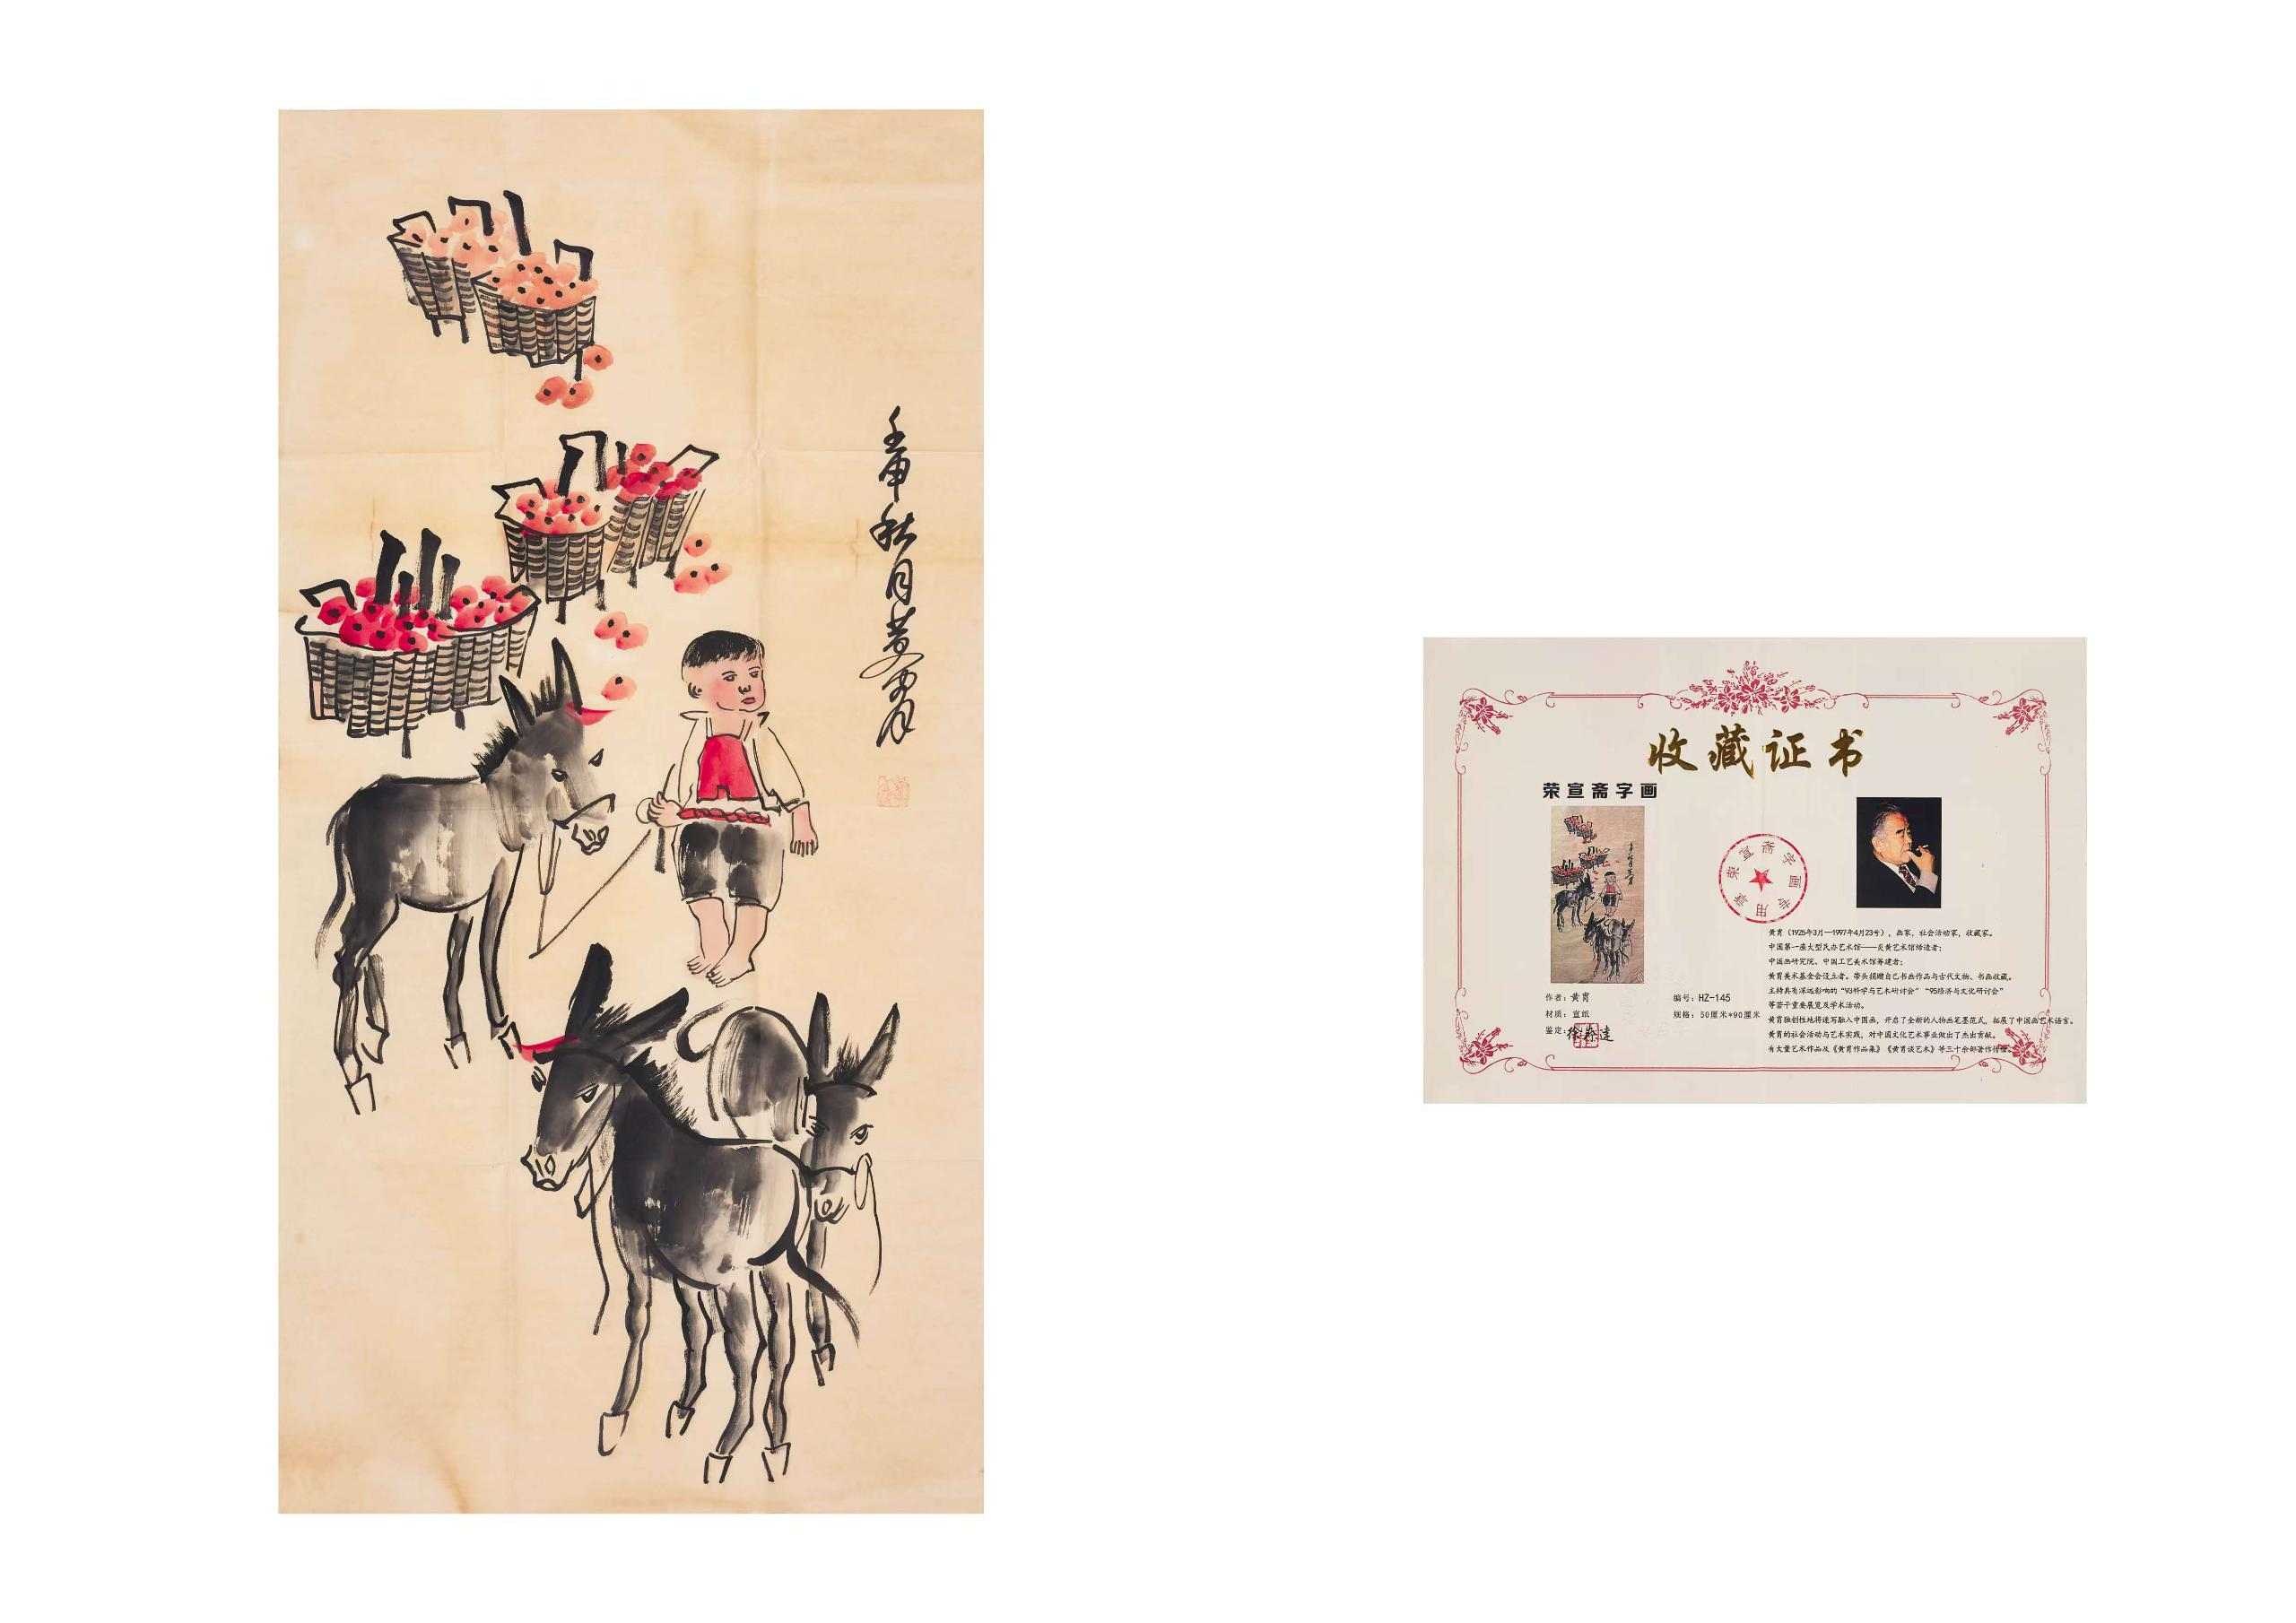 壬申秋月黄胄
收藏证书
荣宣斋字画
荣宣斋字画专用章
作者：黄胄
编号：HZ-145
材质：宣纸
规格：50厘米*90厘米
鉴定：
黄胄（1925年3月—1997年4月23号），画家，社会活动家，收藏家。
中国第一座大型民办艺术馆——炎黄艺术馆缔造者；
中国画研究院、中国工艺美术馆筹建者；
黄胄美术基金会设立者。带头捐赠自己书画作品与古代文物、书画收藏。
主持具有深远影响的“93科学与艺术研讨会”“95经济与文化研讨会”
等若干重要展览及学术活动。
黄胄独创性地将速写融入中国画，开启了全新的人物画笔墨范式，拓展了中国画艺术语言。
黄胄的社会活动与艺术实践，对中国文化艺术事业做出了杰出贡献。
有大量艺术作品及《黄胄作品集》《黄胄谈艺术》等三十余部著作传世。